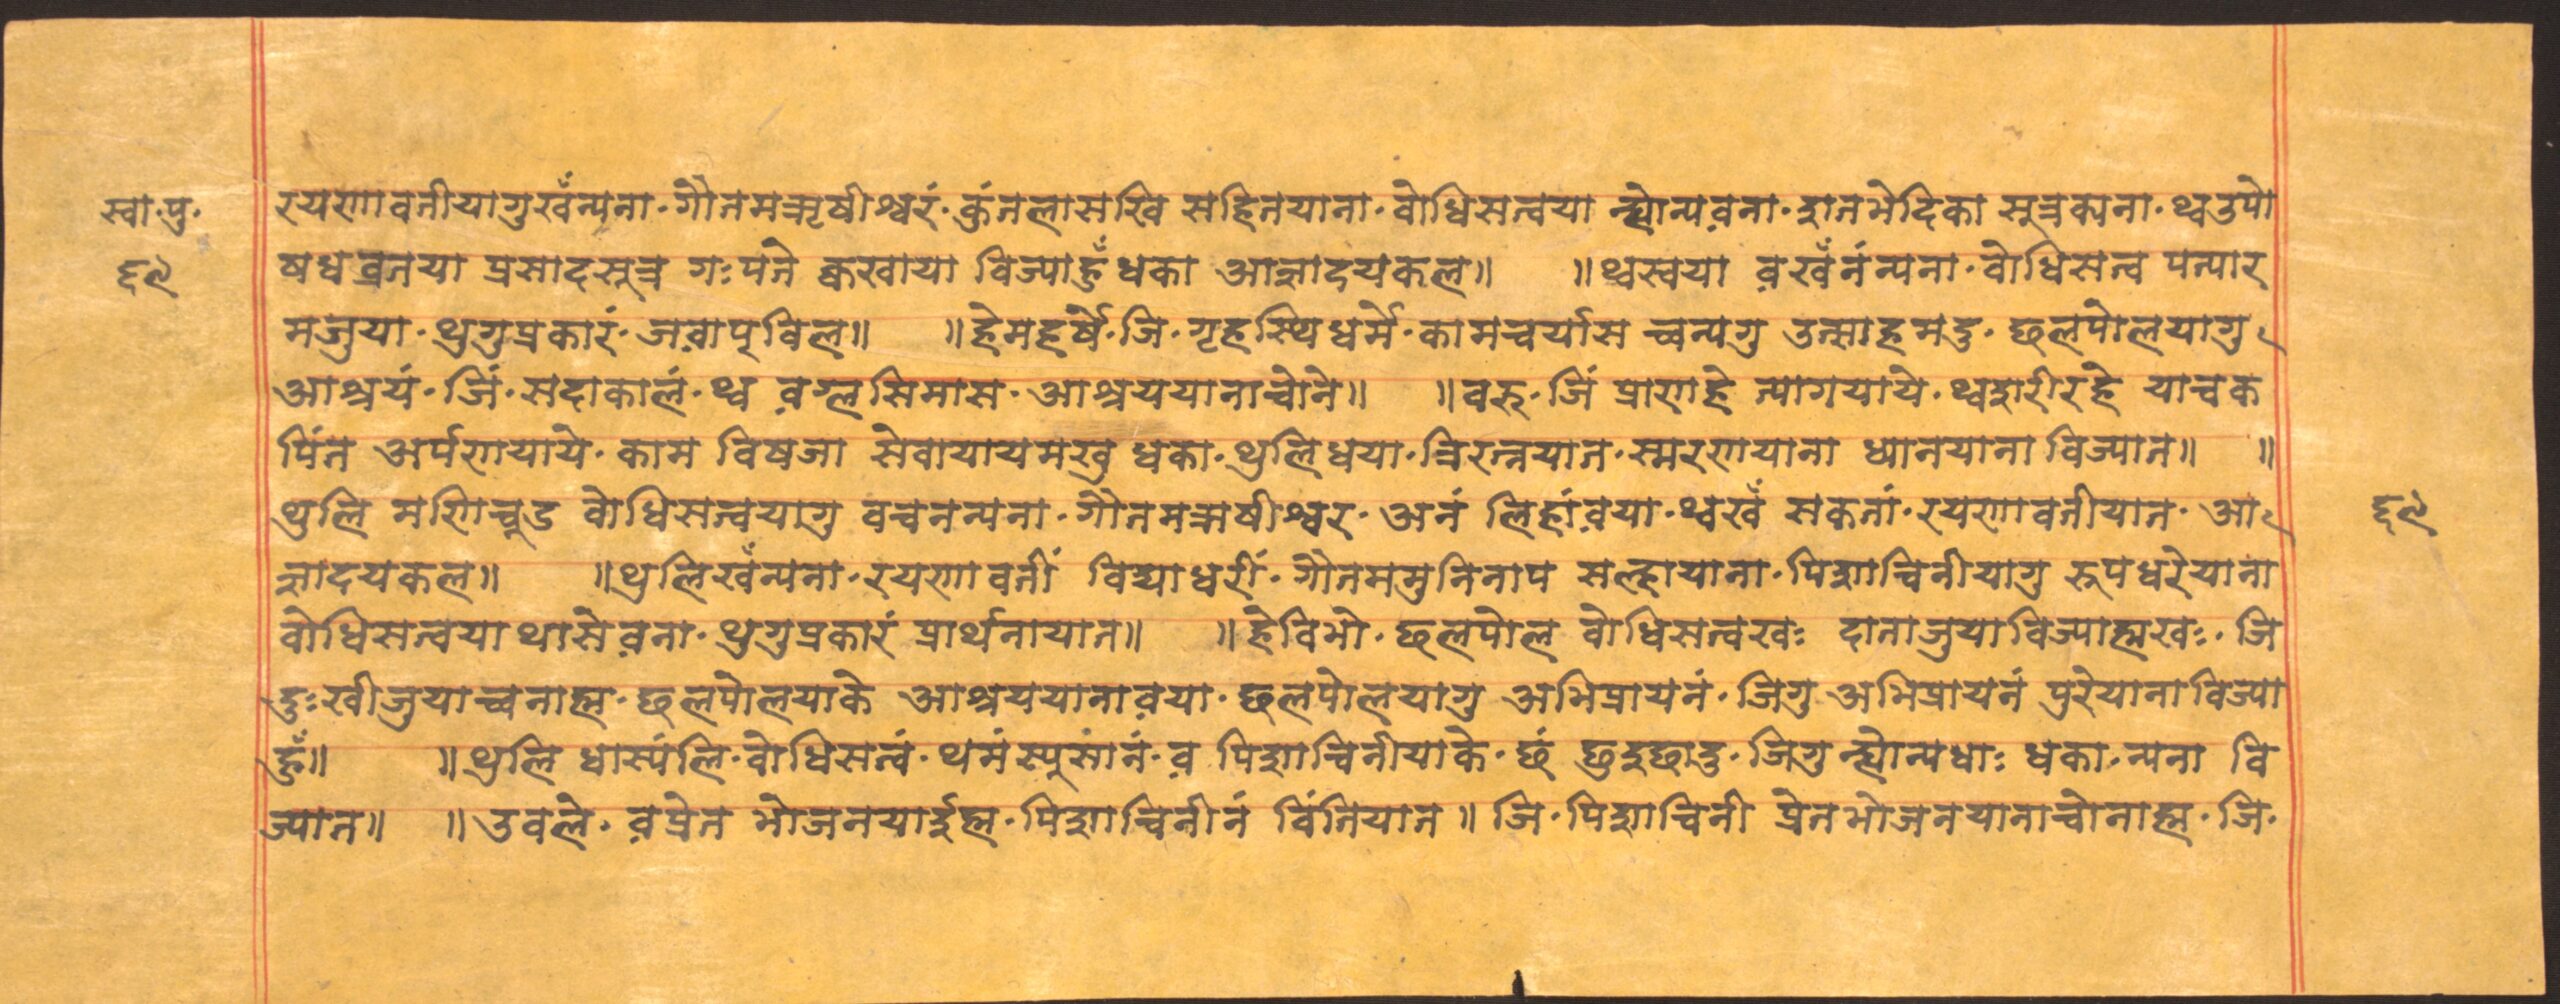 स्वा.पु.
६९
रयणावतीयागुखँन्यना.गौतमऋषीश्वरं.कुंतलासखि सहितयाना.बोधिसत्वया न्ह्योन्यव़ना.शतभेदिका सूत्रक्यना.थ्वउपो
षधव्रतया प्रसादसूत्र गःपतें क्वखाया विज्याहुँ धका आज्ञादयकल॥ ॥थ्वस्वया व़खँनंन्यना.बोधिसत्व पत्यार
मजुया.थुगुप्रकारं.जव़ापुविल॥ ॥हेमहर्षे.जि.गृहस्थिधर्मे.कामचर्यास च्वन्यगु उत्साहमदु.छलपोलयागु
आश्रयं.जिं.सदाकालं.थ्व व़ग्लसिमास.आश्रययानाचोने॥ ॥वरु.जिं प्राणहे त्यागयाये.थ्वशरीरहे याचक
पिंत अर्पणयाये.काम विषजा सेवायायमखु धका.थुलिधया.त्रिरत्नयात.स्मरणयाना ध्यानयाना विज्यात॥ ॥
थुलि मणिचूड बोधिसत्वयागु वचनन्यना.गौतमऋषीश्वर.अनं लिहांव़या.थ्वखँ सकतां.रयणावतीयात.आ
ज्ञादयकल॥ ॥थुलिखँन्यना.रयणावतीं विद्याधरीं.गौतममुनिनाप सल्हायाना.पिशाचिनीयागु रूपधरेयाना
बोधिसत्वया थासेव़ना.थुगुप्रकारं प्रार्थनायात॥ ॥हेविभो.छलपोल बोधिसत्वखः दाताजुयाविज्याह्मखः.जि
दुःखीजुयाच्वनाह्म.छलपोलयाके आश्रययानाव़या.छलपोलयागु अभिप्रायनं.जिगु अभिप्रायनं पुरेयानाविज्या
हुँ॥ ॥थुलि धास्यंलि.बोधिसत्वं.थमंस्यूसांनं.व़ पिशाचिनीयाके.छं छुदुःखदु.जिगु न्ह्योन्यधाः धका.न्यना वि
ज्यात॥ ॥उवले.व़प्रेत भोजनयाईह्म.पिशाचिनीनं विंतियात॥ जि.पिशाचिनी प्रेतभोजनयानाचोनाह्म.जि.
६९